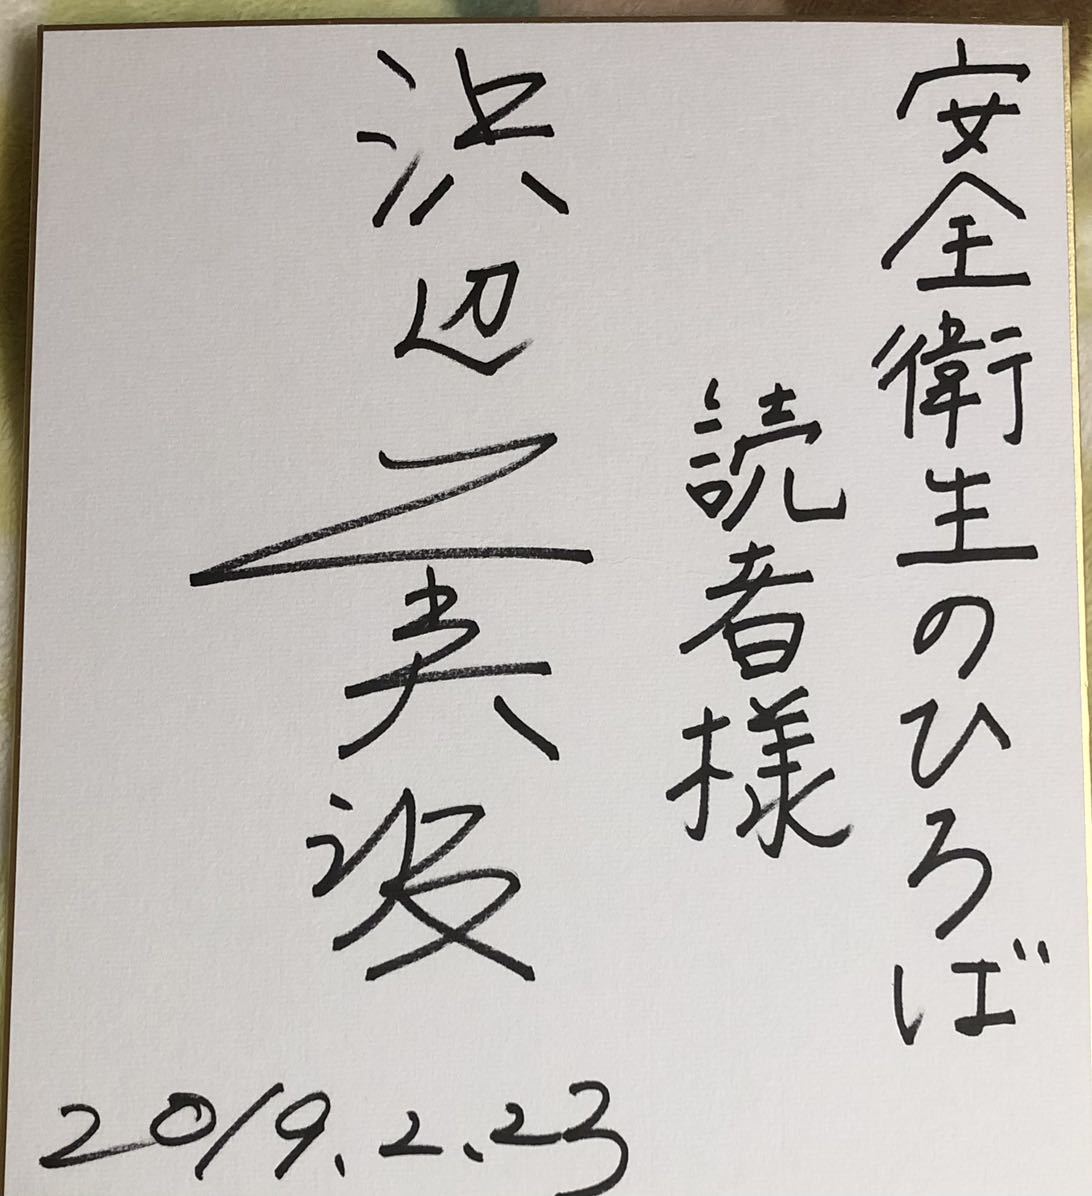 安全衛生のひろば
読者様
浜辺美波
2019.2.23